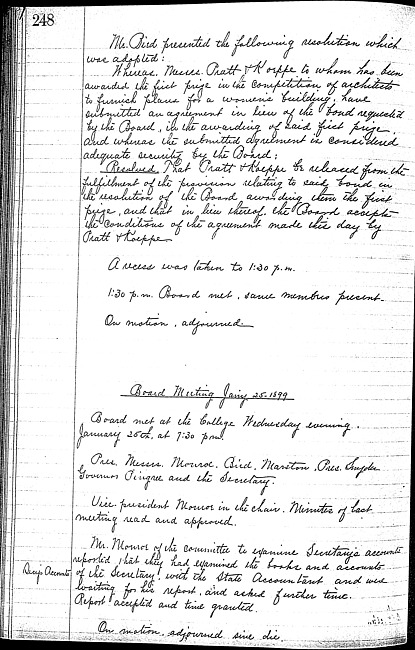 248
Mr. Bird presented the following resolution which
was adopted:
Whereas, Messrs. Pratt & Koeppe to whom has been
awarded the first prize in the competition of architects
to furnish plans for a women's building, have
submitted an agreement in lieu of the bond requested
by the Board, in the awarding of said first prize,
and whereas the submitted agreement is considered
adequate security by the Board;
Resolved, That Pratt & Koeppe be released from the
fulfillment of the provision relating to said bond in
the resolution of the Board awarding them the first
prize, and that in lieu thereof, the Board accepts
the conditions of the agreement made this day by
Pratt & Koeppe.
A recess was taken to 1:30 p.m.
1:30 p.m. Board met, same members present.
On motion, adjourned
Board Meeting Jan'y 25-1899
Board met at the College Wednesday evening,
January 25th, at 7:30 p.m.
Pres. Messrs. Monroe, Bird, Marston, Pres. Snyder
Governor Pingree and the Secretary.
Vice president Monroe in the chair. Minutes of last
meeting read and approved.
Mr. Monroe of the committee to examine Secretary's accounts
reported that they had examined the books and accounts
Secy's Accounts
of the Secretary, with the State Accountant and were
waiting for his report, and asked further time.
Report accepted and time granted.
On motion, adjourned sine die.